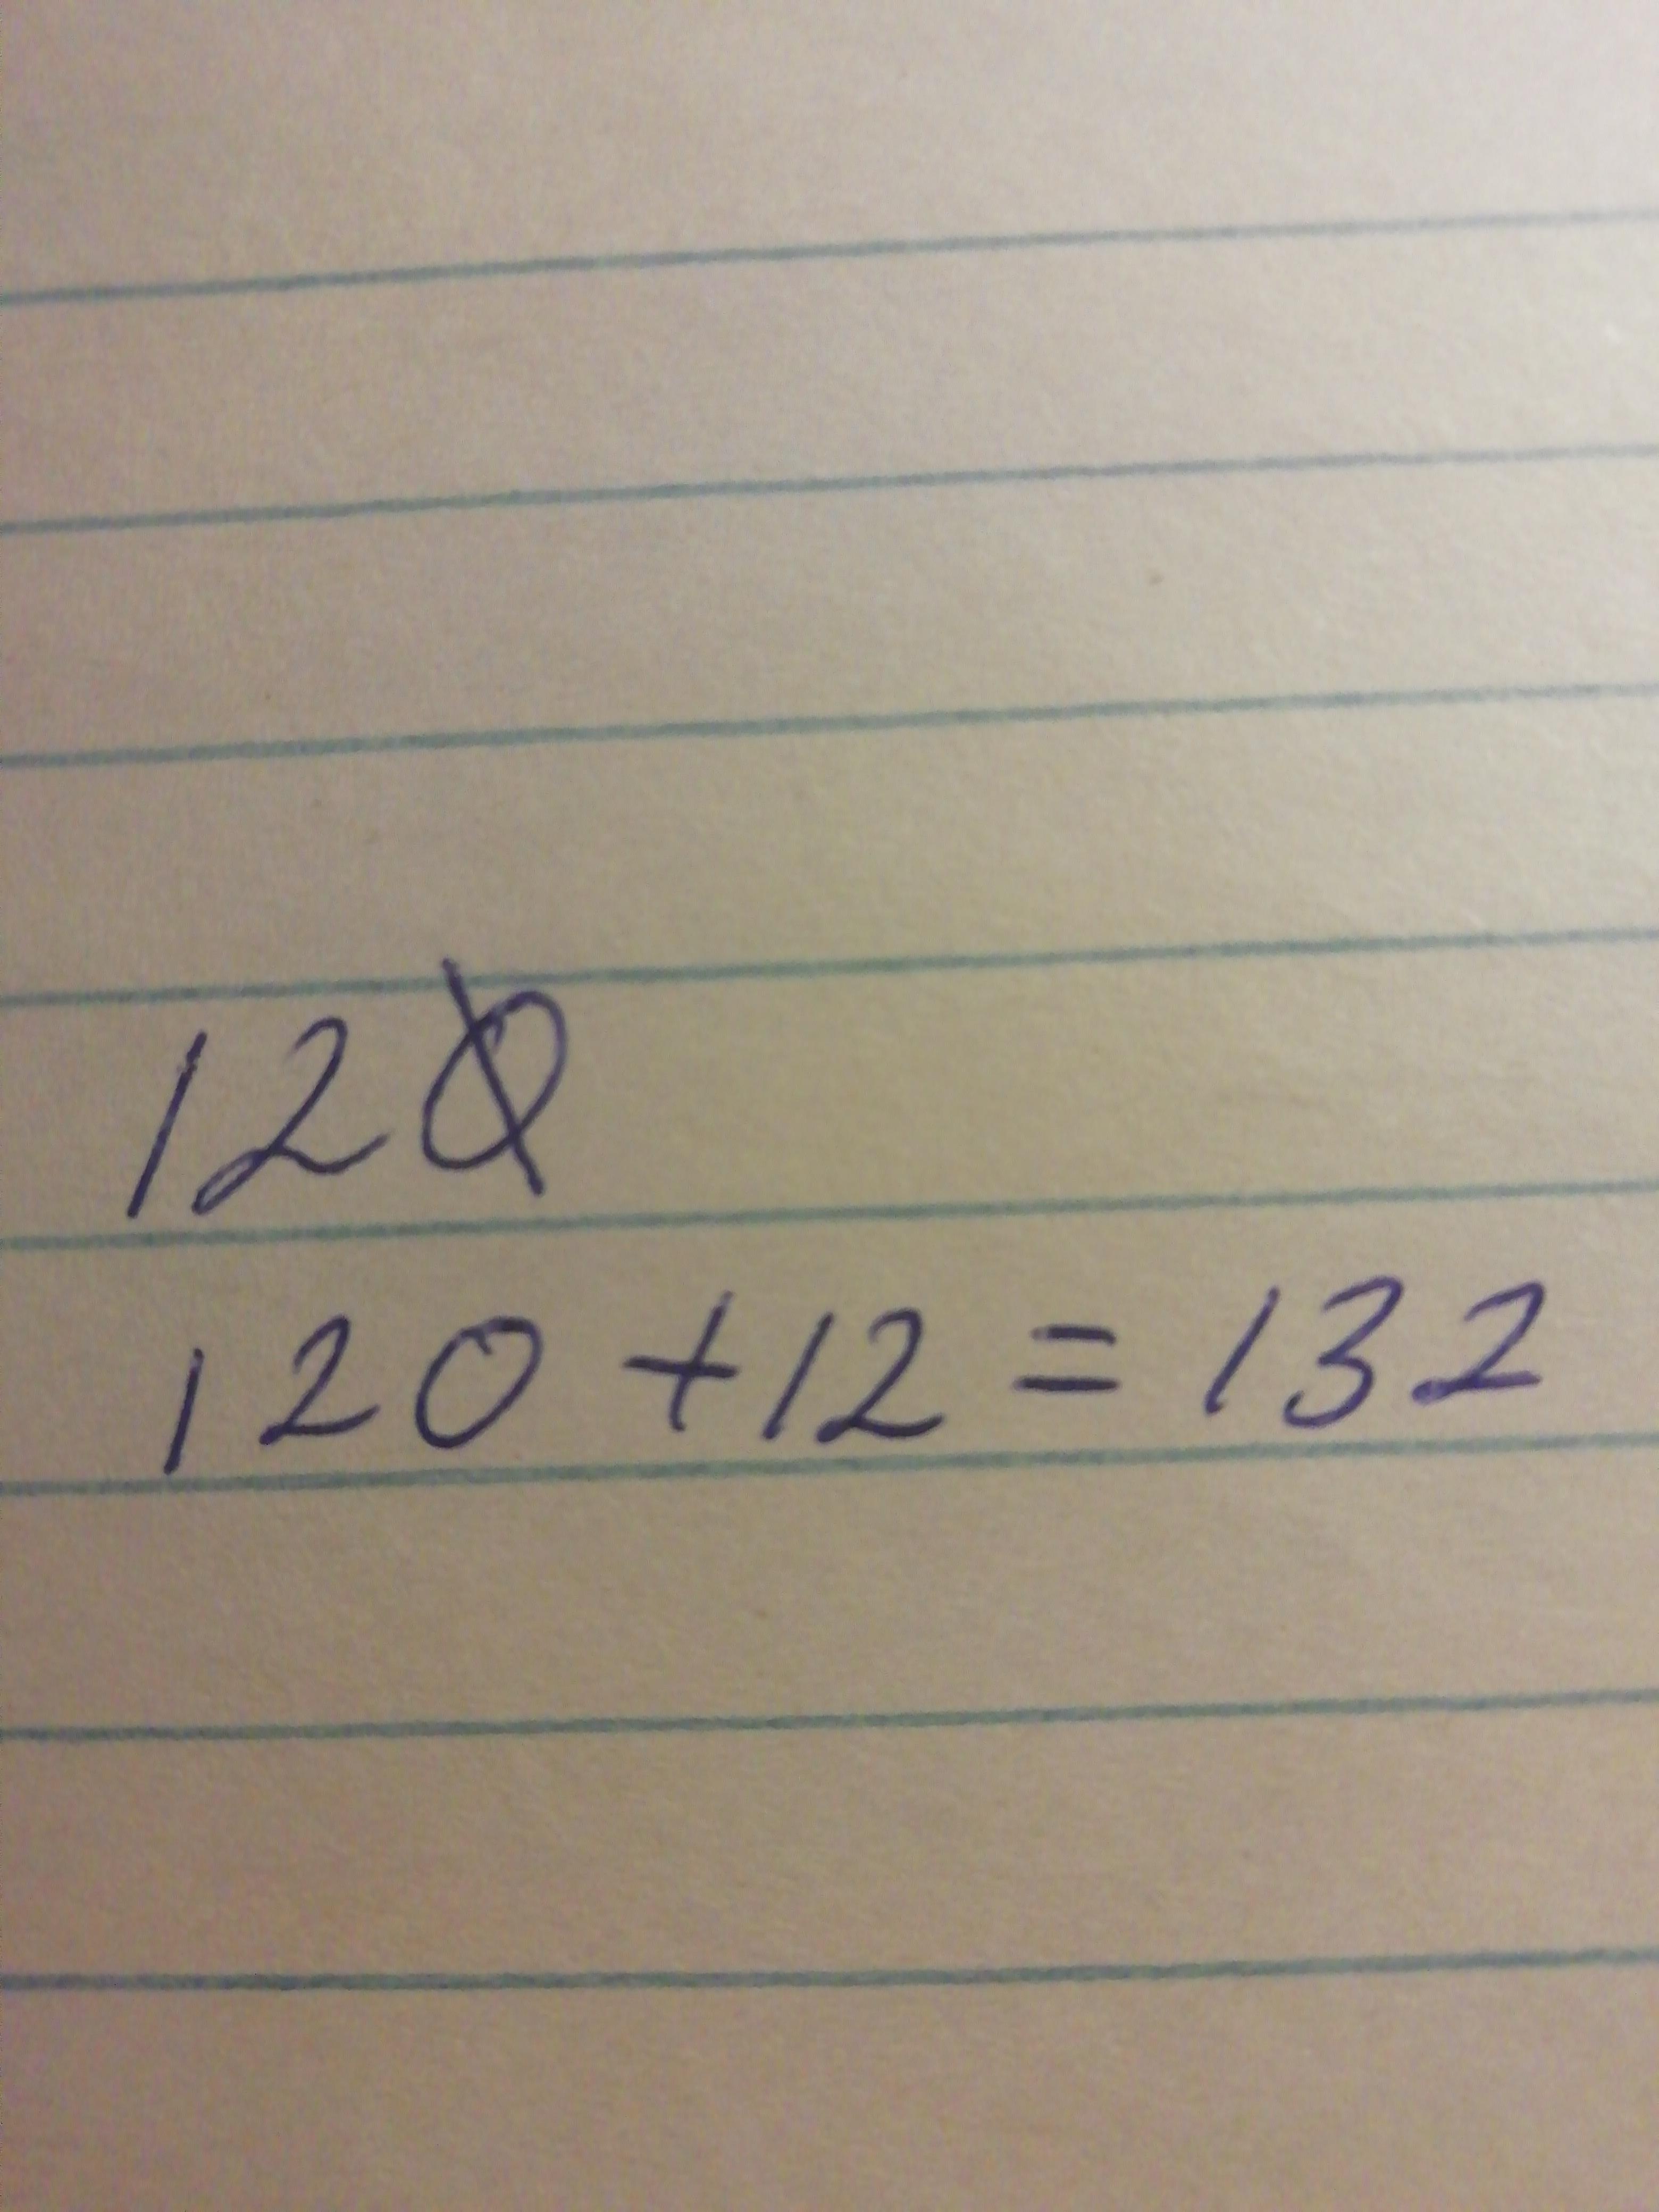 120
120 + 12 = 132